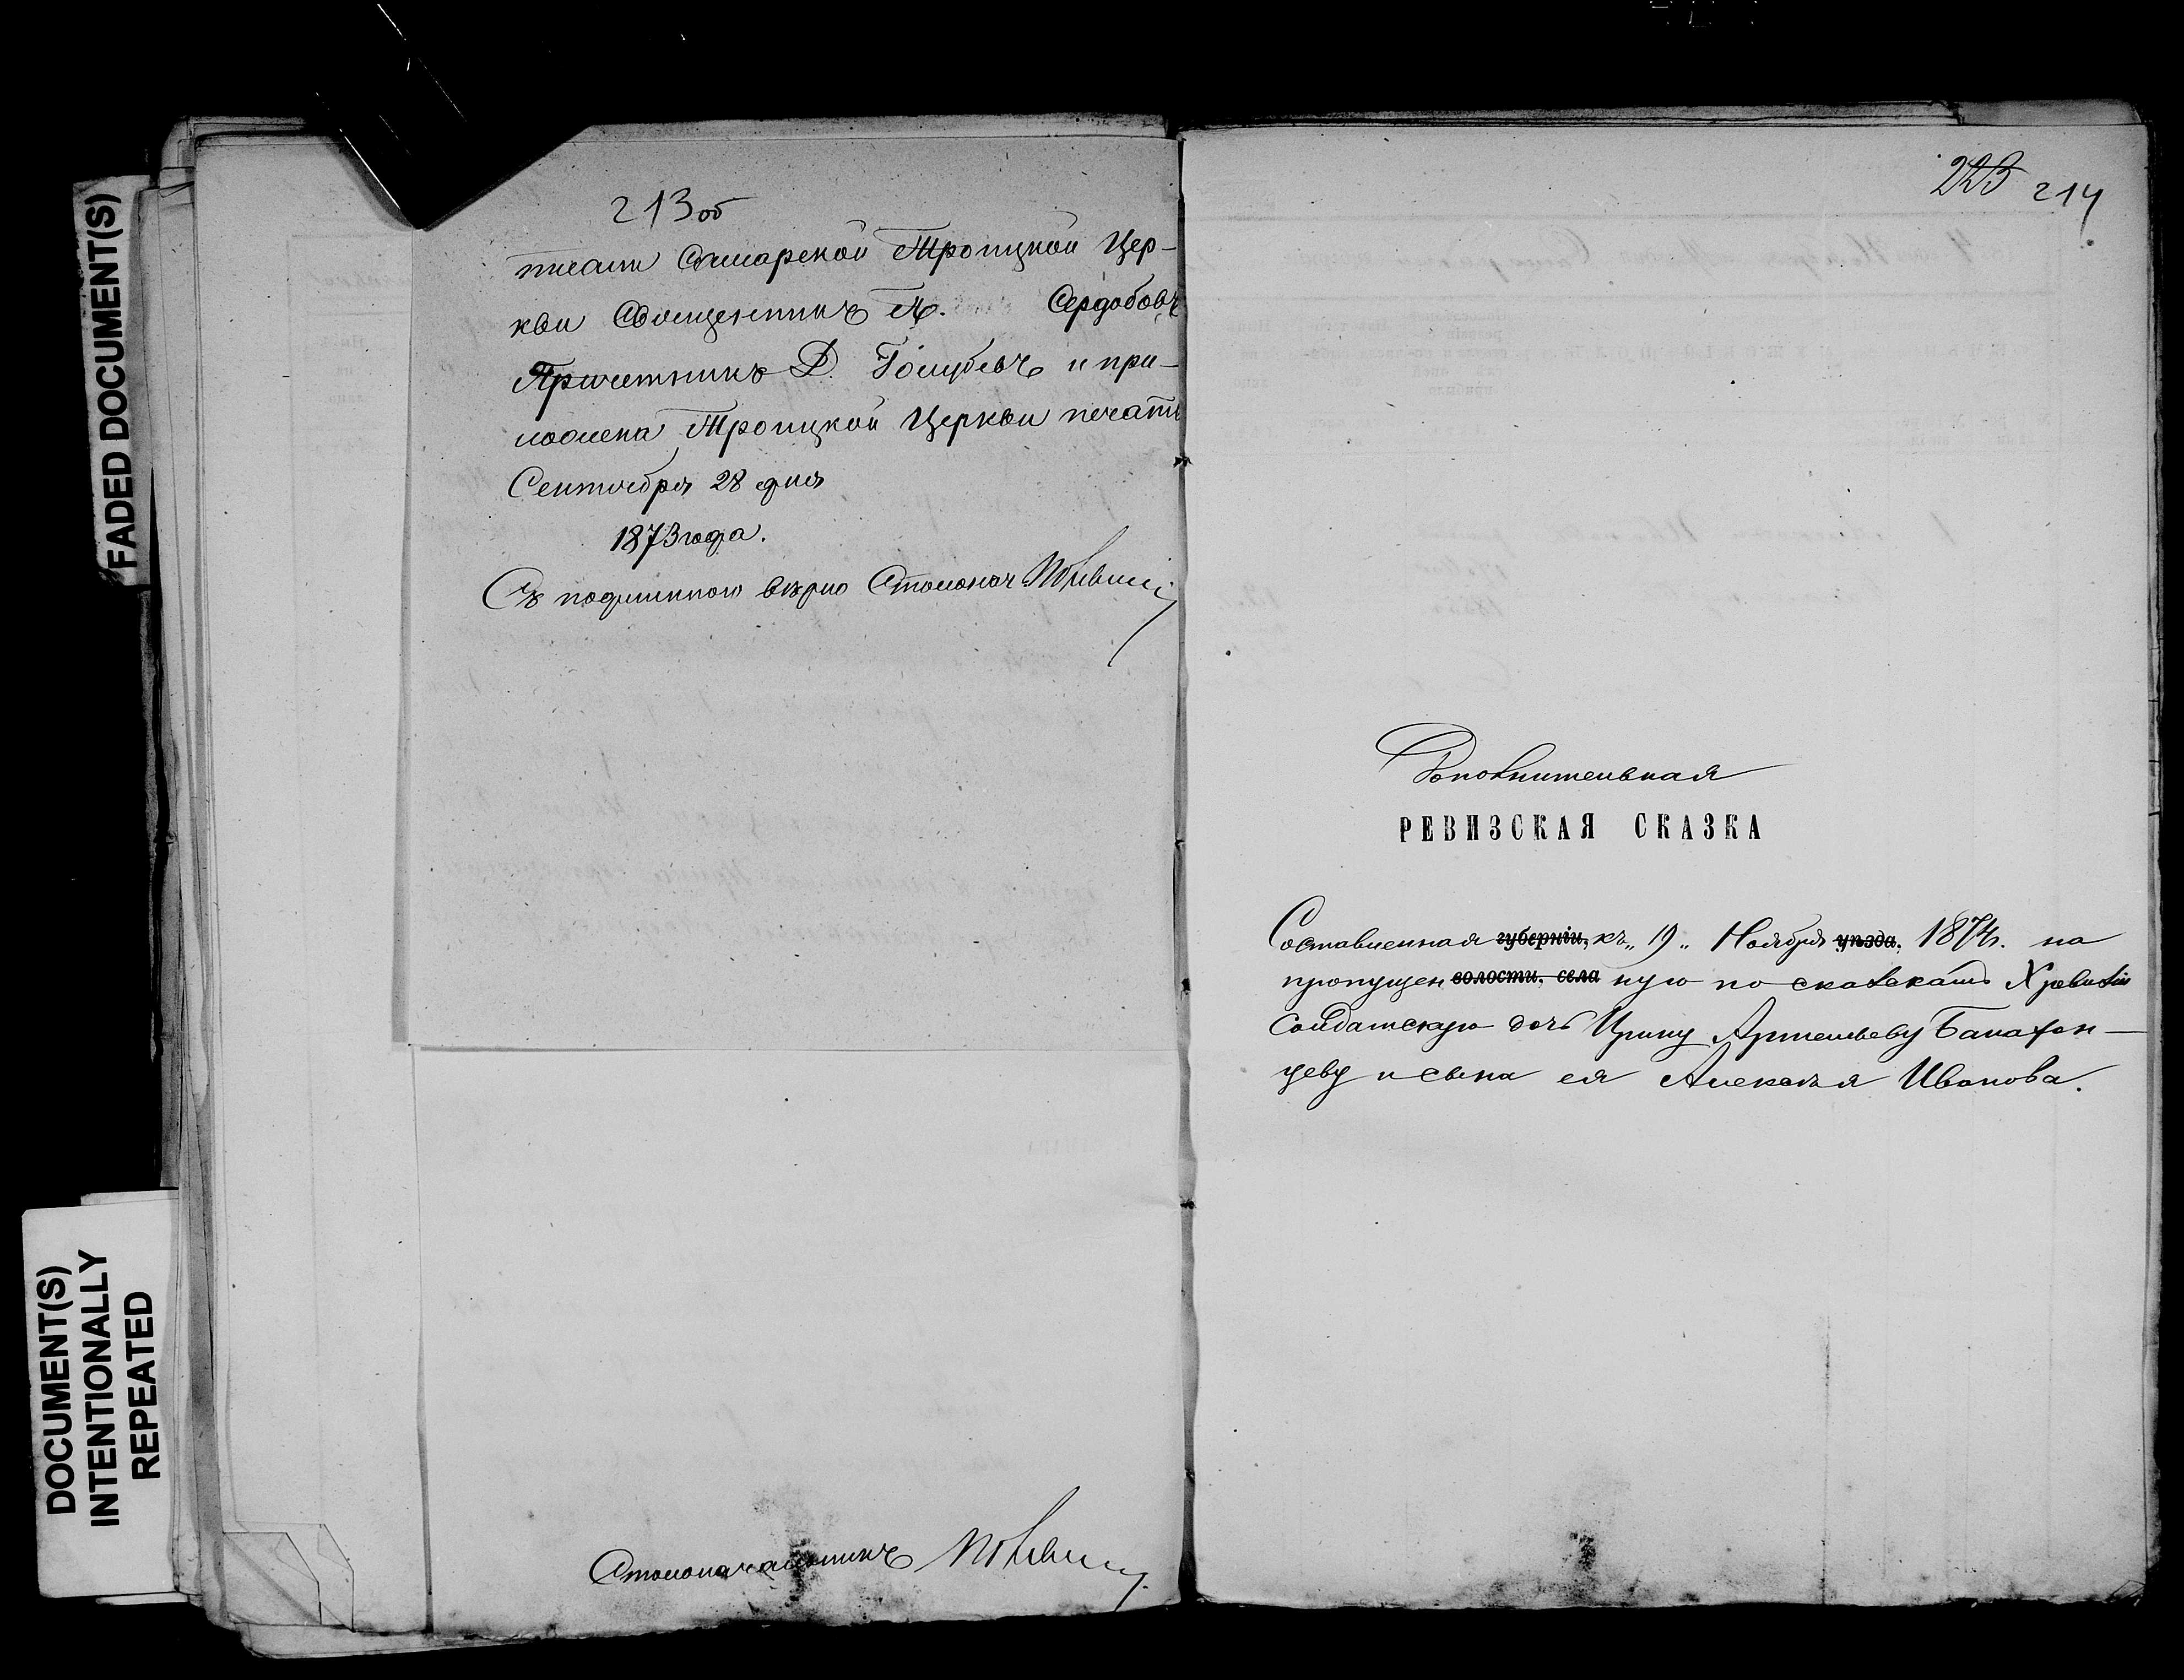 FADED DOCUMENT(S)
DOCUMENT(S)
INTENTIONALLY
REPEATED
213об
писали Самарской Троицкой Цер-
кви Священникъ А. Сердобовъ
Причетникъ Д. Голубевъ и при-
ложена Троицкой Церкви печать
Сентября 28 дня
1873 года.
Съ подлиннымъ вѣрно Столонач
Столоначальникъ
223 214
Дополнительная
РЕВИЗСКАЯ СКАЗКА
Составленная губерніи, къ „19„ Ноября уѣзда, 1874г. на
пропущен волости, села ную по сказкамъ X ревизіи
Солдатскую дочь Ирину Артемьеву Балахон-
цеву и сына ея Алексѣя Иванова.